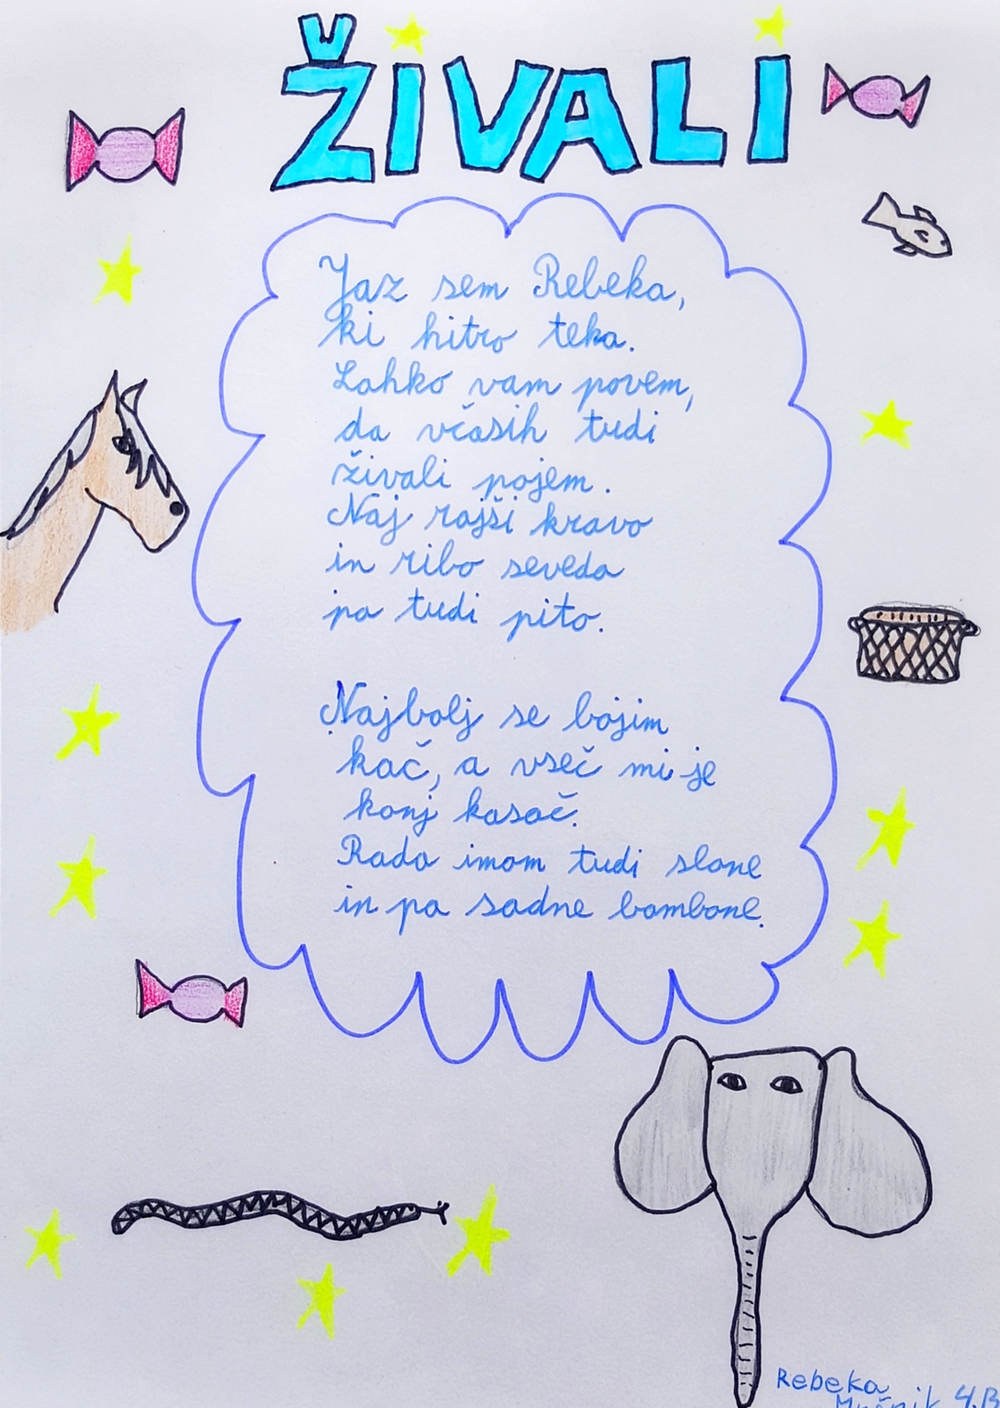 ŽIVALI
Jaz sem Rebeka,
ki hitro teka.
Lahko vam povem,
da včasih tudi
živali pojem.
Naj rajši kravo
in ribo seveda
pa tudi pito.
Najbolj se bojim
kač, a všeč mi je
konj kasač.
Rada imam tudi slone
in pa sadne bombone.
Rebeka
4.B